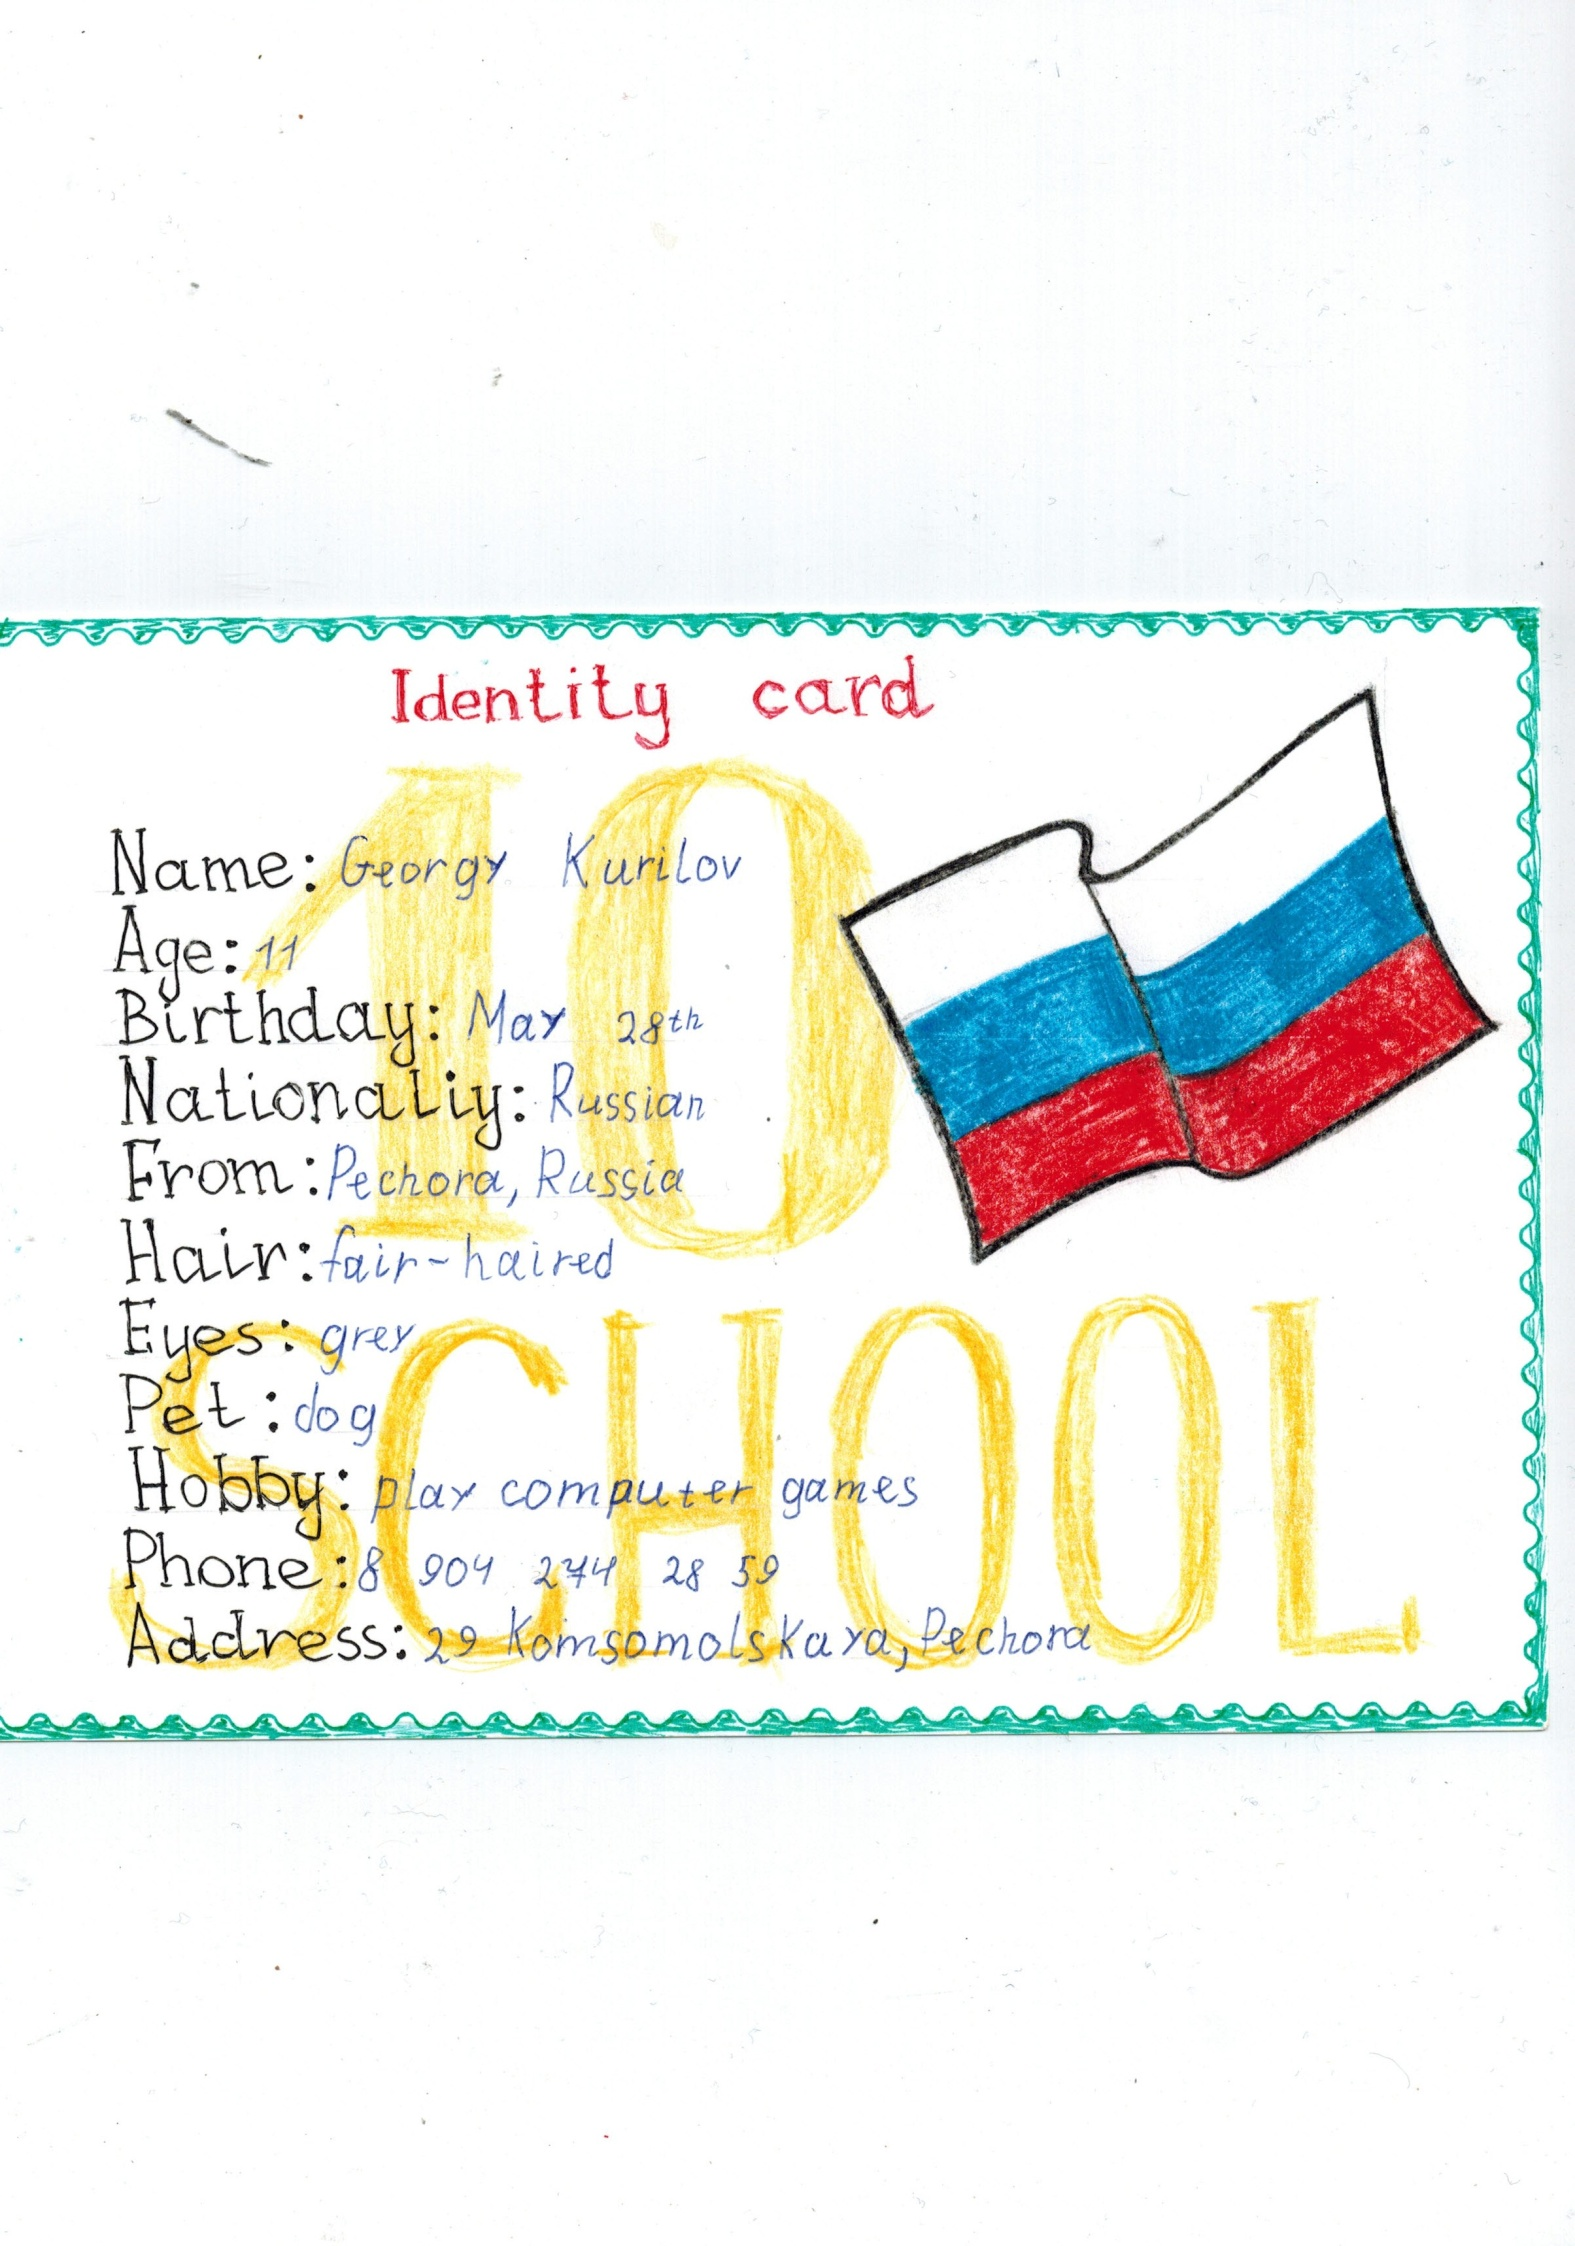 Identity card
10
Name: Georgy Kurilov
Age: 11
Birthday: May 28th
Nationaliy: Russian
From: Pechora, Russia
Hair: fair-haired
Eyes: grey
Pet: dog
Hobby: play computer games
Phone: 8 904 274 28 59
Address: 29 Komsomolskaya, Pechora
SCHOOL